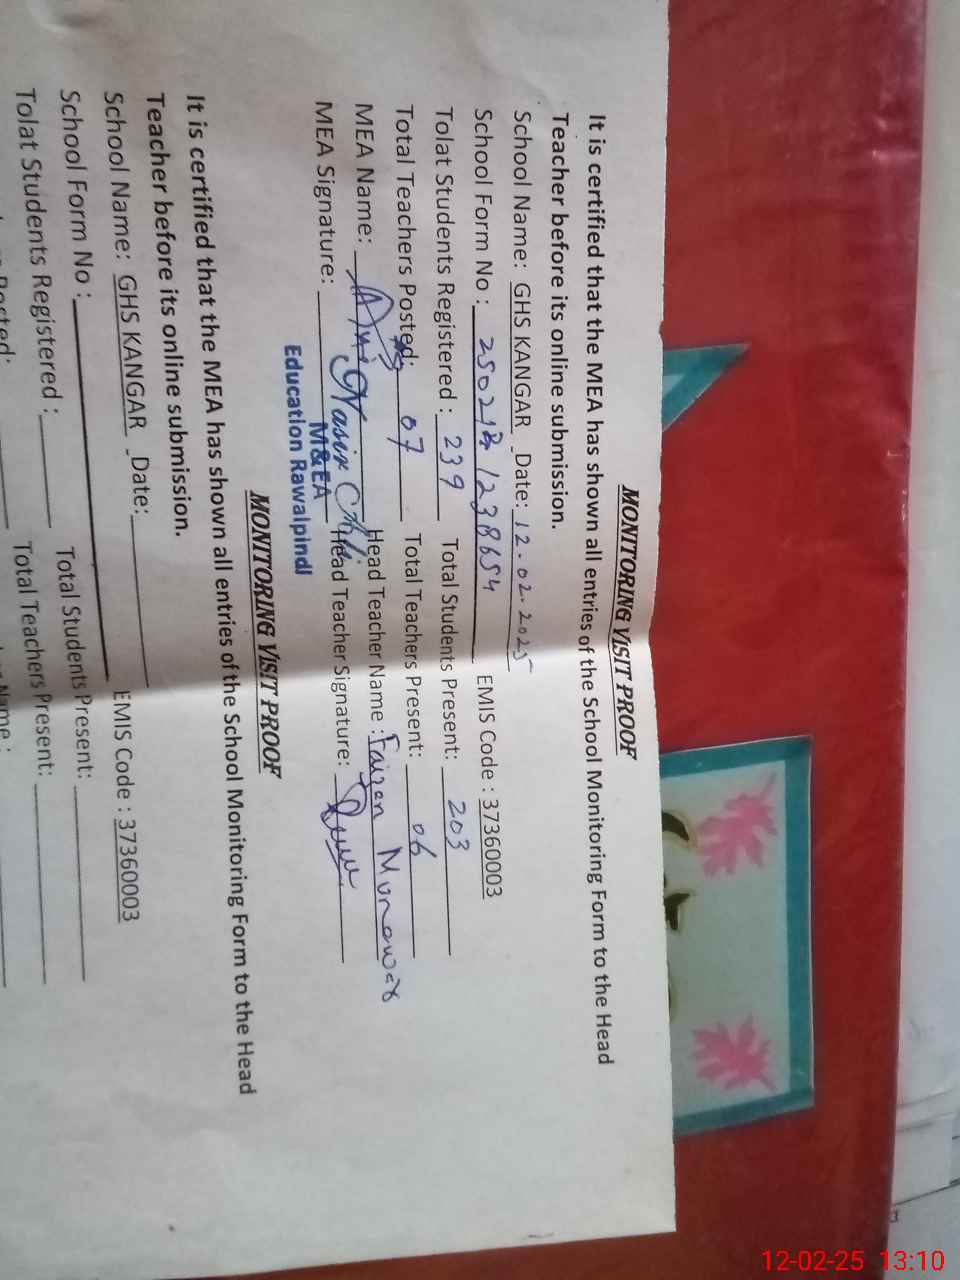 MONITORING VISIT PROOF
It is certified that the MEA has shown all entries of the School Monitoring Form to the Head
Teacher before its online submission.
School Name: GHS KANGAR Date: 12.02.2025
School Form No : EMIS Code : 37360003
Tolat Students Registered : 239 Total Students Present: 203
Total Teachers Posted: 07 Total Teachers Present: 06
MEA Name: Head Teacher Name : Faizan Munawar
MEA Signature: Nasir Head Teacher Signature:
M&EA
Education Rawalpindi
MONITORING VISIT PROOF
It is certified that the MEA has shown all entries of the School Monitoring Form to the Head
Teacher before its online submission.
School Name: GHS KANGAR Date: EMIS Code : 37360003
School Form No :
Tolat Students Registered : Total Students Present:
Total Teachers Present:
Name :
12-02-25 13:10